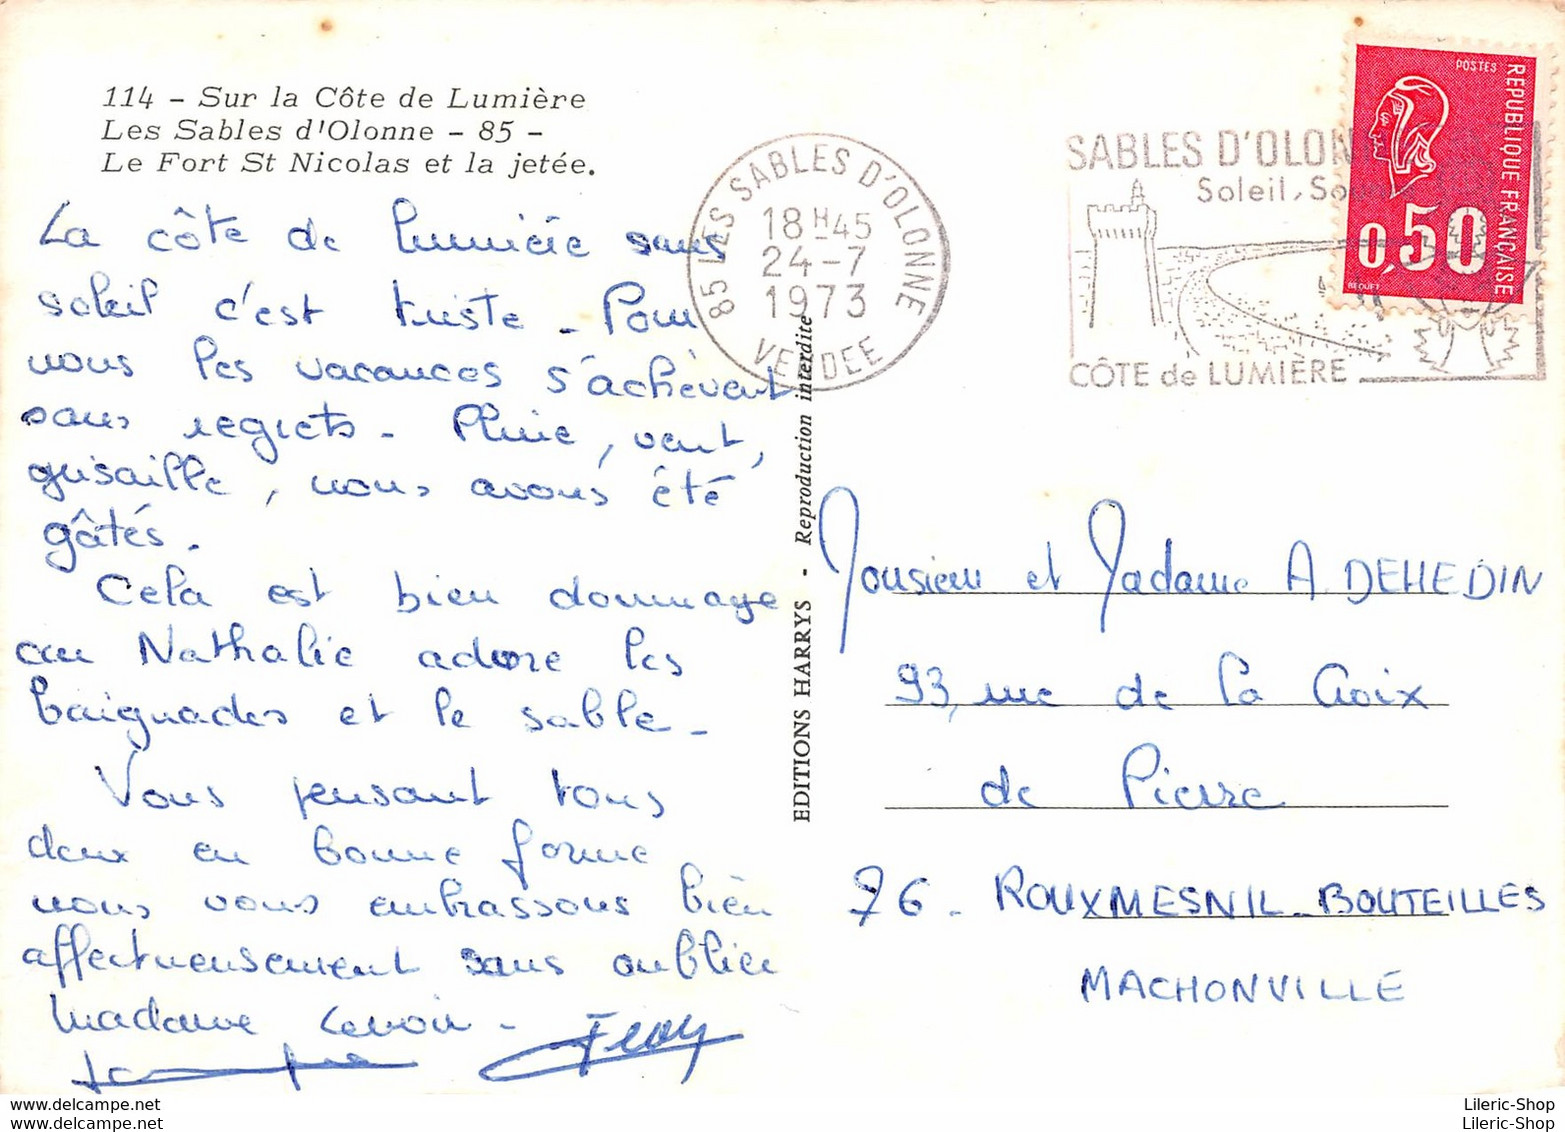 114 - Sur la Côte de Lumière
Les Sables d'Olonne - 85 -
Le Fort St Nicolas et la jetée.
La côte de lumière sans
soleil c'est triste - Pour
nous les vacances s'achèvent
sans regrets - Pluie, vent,
grisaille, nous avons été
gâtés.
Cela est bien dommage
car Nathalie adore les
baignades et le sable -
Vous pensant tous
deux en bonne forme
nous vous embrassons bien
affectueusement sans oublier
Madame Lenoir -
85 LES SABLES D'OLONNE
18H45
24-7
1973
VENDEE
EDITIONS HARRYS - Reproduction interdite
SABLES D'OLON
Soleil, So
CÔTE de LUMIÈRE
POSTES
REPUBLIQUE FRANÇAISE
0,50
BEQUET
Monsieur et Madame A. DEHEDIN
93, rue de la Croix
de Pierre
76 - ROUXMESNIL-BOUTEILLES
MACHONVILLE
www.delcampe.net
www.delcampe.net
Lileric-Shop
Lileric-Shop